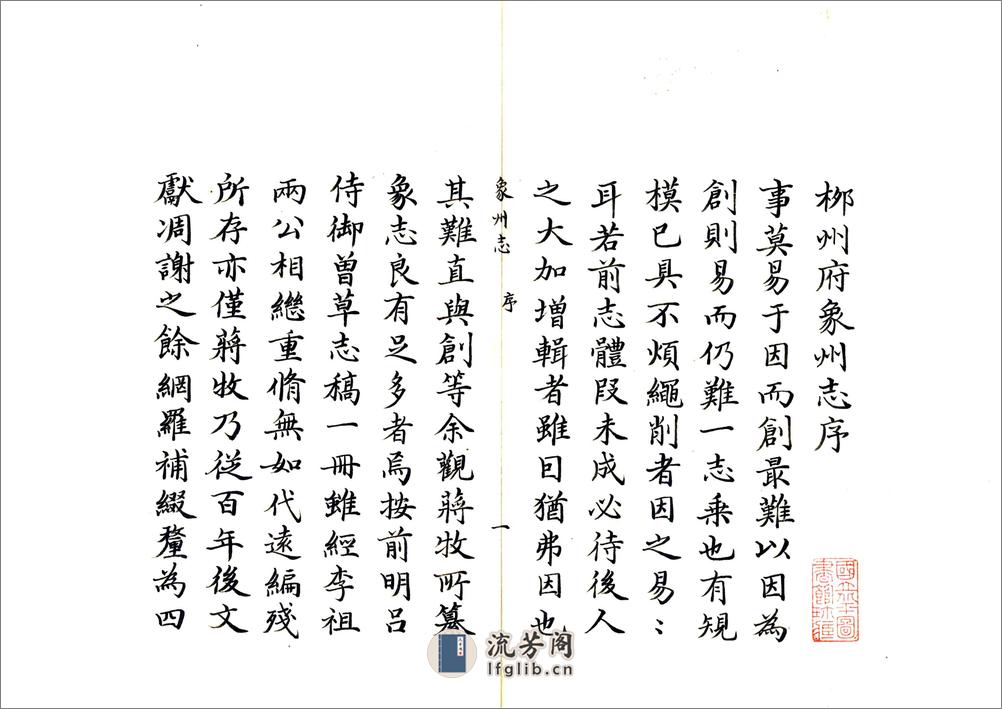 柳州府象州志序
事莫易于因而創最難以因為
創則易而仍難一志乘也有規
模已具不煩繩削者因之易〻
耳若前志體段未成必待後人
之大加增輯者雖曰猶弗因也
象州志 序 一
其難直與創等余觀蔣牧所纂
象志良有足多者焉按前明呂
侍御曾草志稿一冊雖經李祖
兩公相繼重脩無如代遠編殘
所存亦僅蔣牧乃從百年後文
獻凋謝之餘網羅補綴釐為四
流芳阁
lfglib.cn